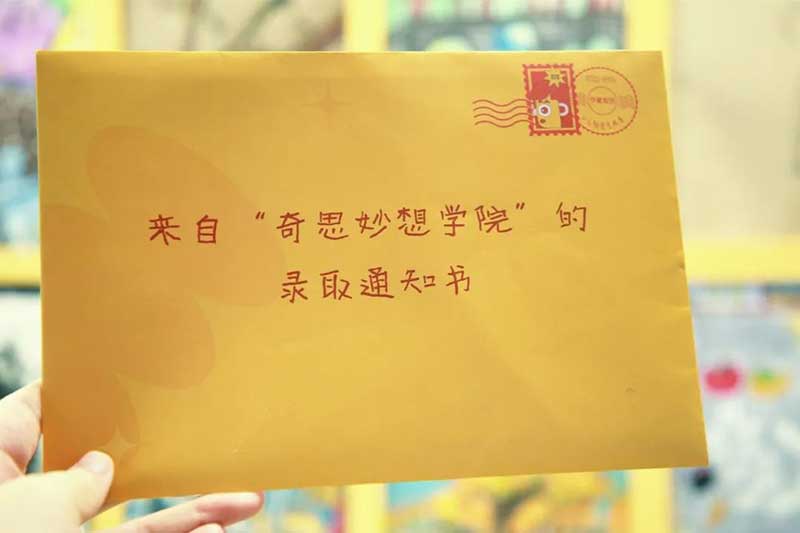 来自“奇思妙想学院”的
录取通知书